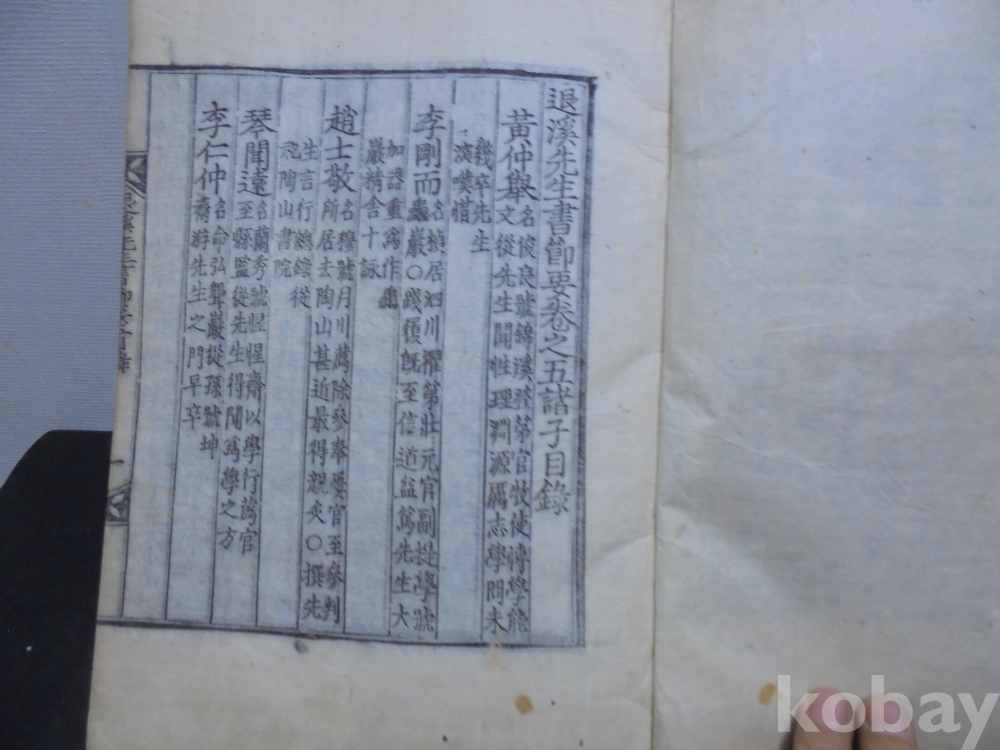 退溪先生書節要卷之五諸子目錄
黃仲擧 名俊良號錦溪登第官牧使博學能
文從先生聞性理淵源厲志學問未
幾卒先生
深嘆惜
李剛而 名楨居泗川擢第壯元官副提學號
龜巖○踐履旣至信道益篤先生大
加器重爲作龜
巖精舍十詠
趙士敬 名穆號月川薦除參奉屢官至參判
所居去陶山甚近最得親炙○撰先
生言行總錄從
祀陶山書院
琴聞遠 名蘭秀號惺惺齋以學行薦官
至縣監從先生得聞爲學之方
李仁仲 名命弘聾巖從孫號坤
齋游先生之門早卒
退溪先生書節要目錄
一
kobay